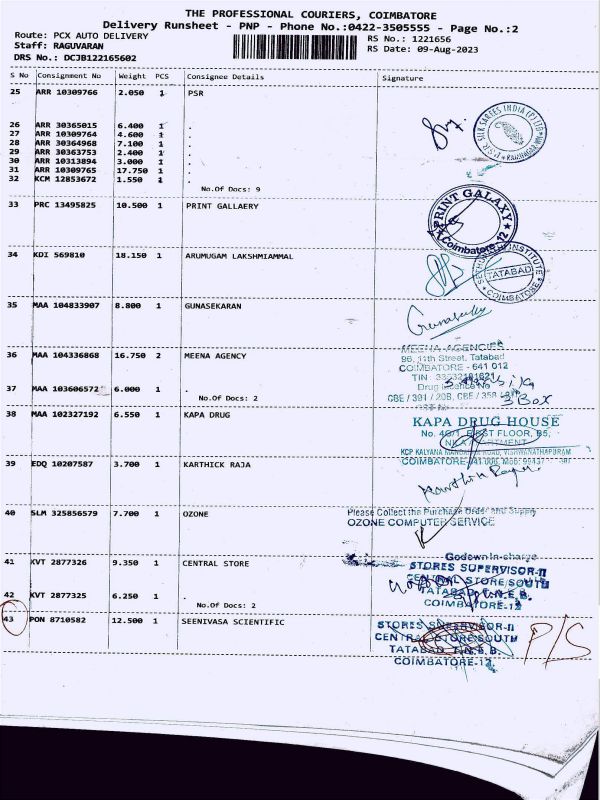 THE PROFESSIONAL COURIERS, COIMBATORE
Delivery Runsheet - PNP - Phone No.:0422-3505555 - Page No.:2
Route: PCX AUTO DELIVERY RS No.: 1221656
Staff: RAGUVARAN RS Date: 09-Aug-2023
DRS No.: DCJB122165602
S No Consignment No Weight PCS Consignee Details Signature
25 ARR 10309766 2.050 1 PSR
26 ARR 30365015 6.400 1 .
27 ARR 10309764 4.600 1 .
28 ARR 30364968 7.100 1 .
29 ARR 30363753 2.400 1 .
30 ARR 10313894 3.000 1 .
31 ARR 10309765 17.750 1 .
32 KCM 12853672 1.550 1 .
No.Of Docs: 9
SILK SAREES INDIA (P) LTD
33 PRC 13495825 10.500 1 PRINT GALLAERY
PRINT GALAXY
Coimbatore-12
34 KDI 569810 18.150 1 ARUMUGAM LAKSHMIAMMAL
INSTITUTE
TATABAD
COIMBATORE
35 MAA 104833907 8.800 1 GUNASEKARAN
Gunasekar
36 MAA 104336868 16.750 2 MEENA AGENCY
MEENA AGENCIES
96, 11th Street, Tatabad
COIMBATORE - 641 012
TIN
Drug Licence No
37 MAA 103606572 6.000 1 .
No.Of Docs: 2
CBE / 391 / 20B, CBE / 358
3 Box
38 MAA 102327192 6.550 1 KAPA DRUG
KAPA DRUG HOUSE
FIRST FLOOR, B5,
KCP KALYANA ROAD, VISHWANATHAPURAM
COIMBATORE
39 EDQ 10207587 3.700 1 KARTHICK RAJA
40 SLM 325856579 7.700 1 OZONE
Please Collect the Purchase Order and Supply
OZONE COMPUTER SERVICE
41 KVT 2877326 9.350 1 CENTRAL STORE
Godown in-charge
STORES SUPERVISOR-II
CENTRAL STORE/SOUTH
TATABAD, T.N.E.B.
COIMBATORE-12
42 KVT 2877325 6.250 1 .
No.Of Docs: 2
43 PON 8710582 12.500 1 SEENIVASA SCIENTIFIC
STORES SUPERVISOR-II
CENTRAL STORE/SOUTH
TATABAD, T.N.E.B.
COIMBATORE-12.
P/S